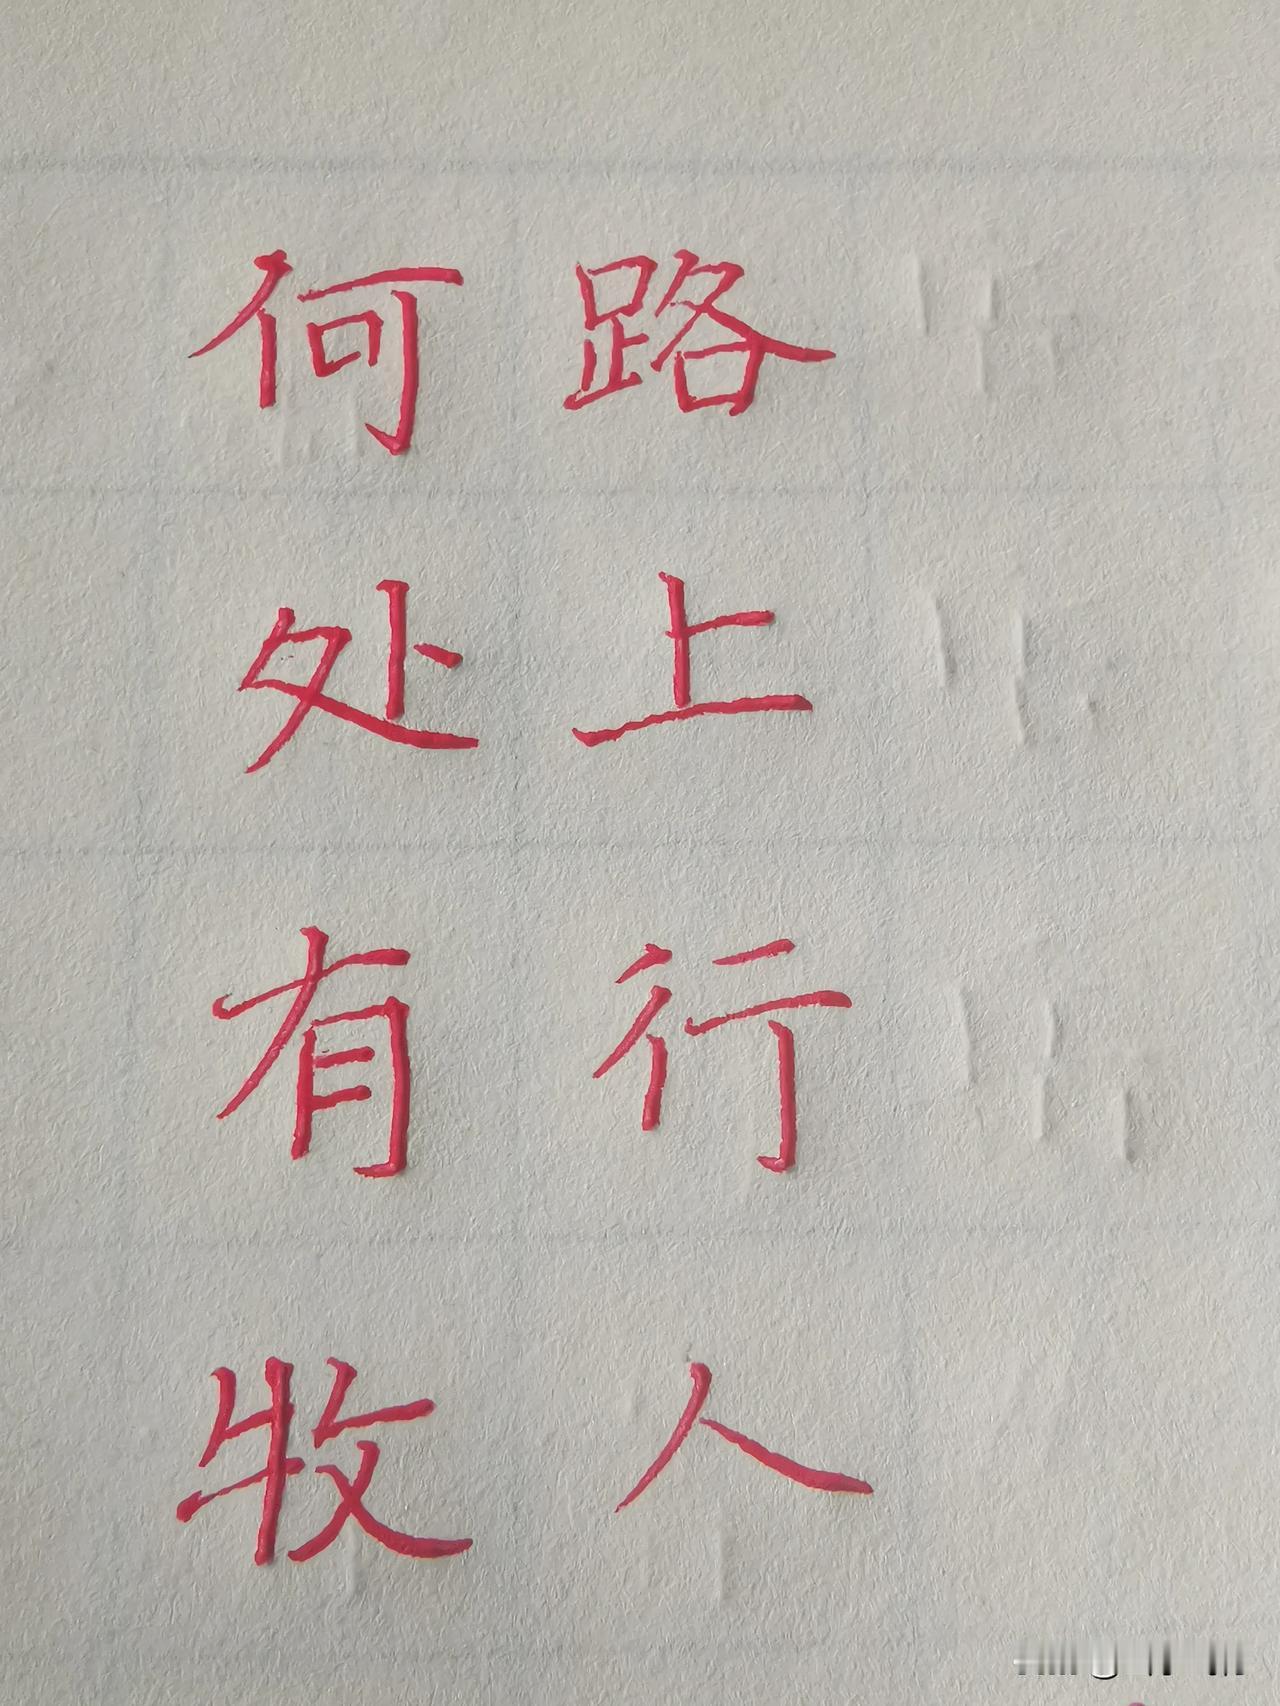 路上行人
何处有牧